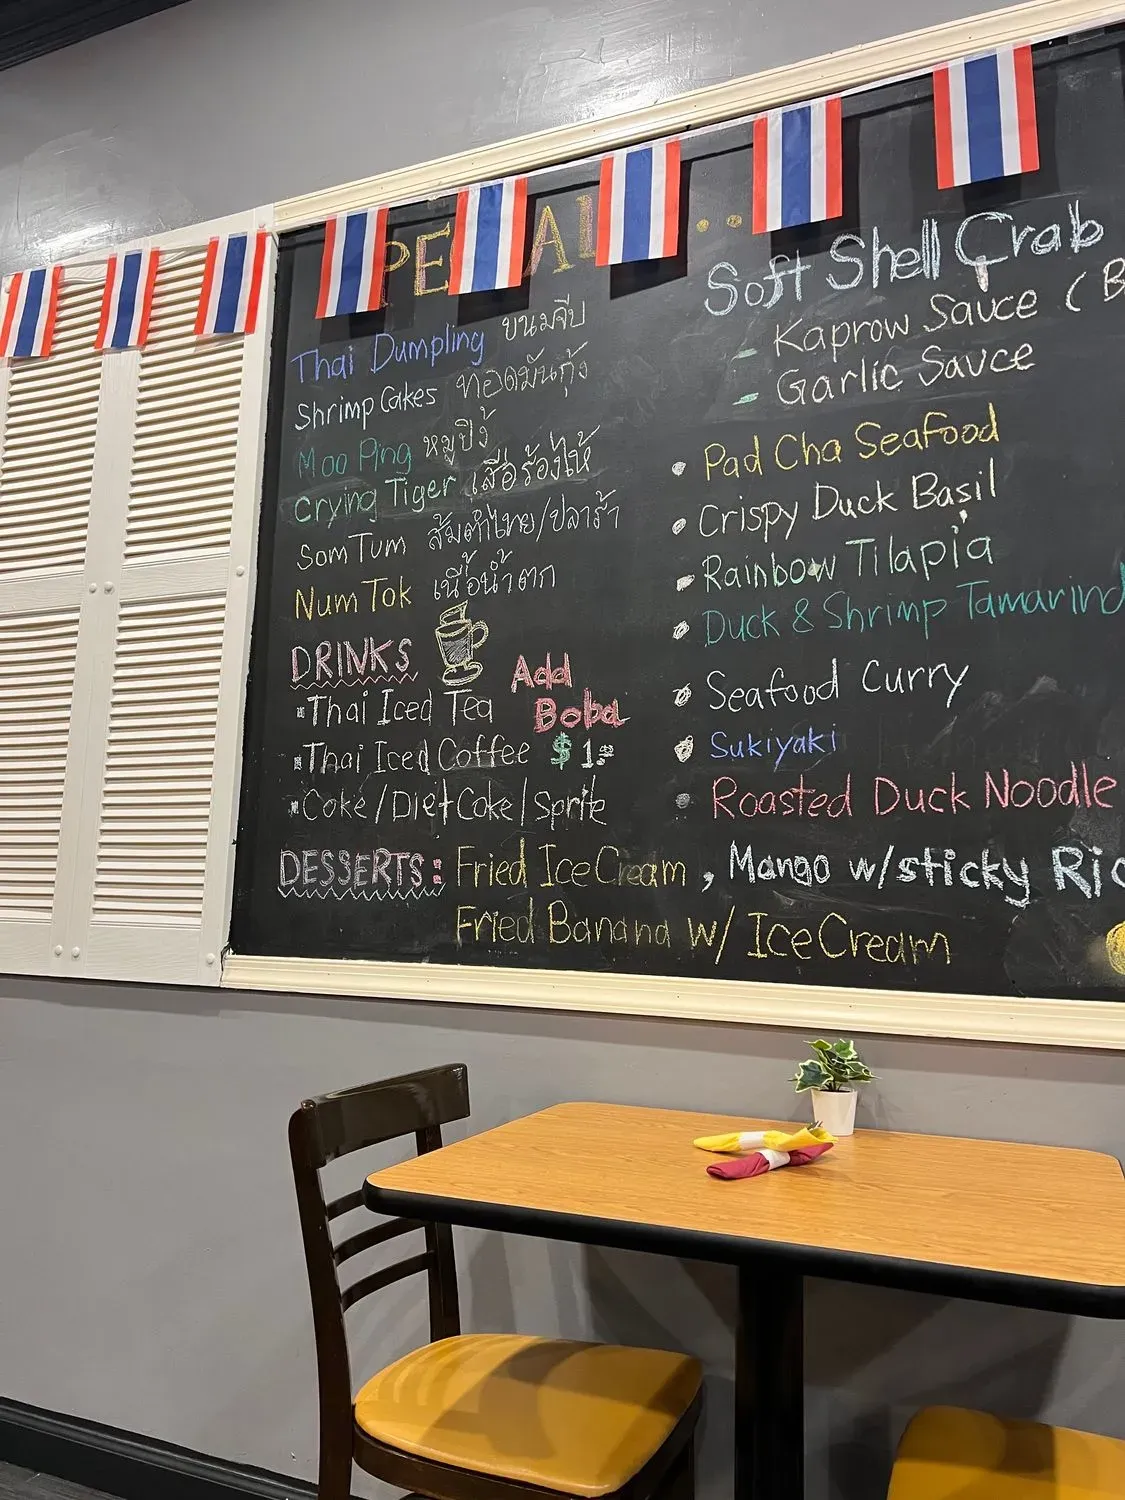 Thai Dumpling ขนมจีบ
Shrimp Cakes ทอดมันกุ้ง
Moo Ping หมูปิ้ง
Crying Tiger เสือร้องไห้
Som Tum ส้มตำไทย/ปลาร้า
Num Tok เนื้อน้ำตก
DRINKS
Thai Iced Tea
Add
Boba
Thai Iced Coffee $1.00
Coke/Diet Coke/Sprite
Soft Shell Crab
- Kaprow Sauce (B
- Garlic Sauce
• Pad Cha Seafood
• Crispy Duck Basil
• Rainbow Tilapia
• Duck & Shrimp Tamarind
• Seafood Curry
• Sukiyaki
• Roasted Duck Noodle
DESSERTS: Fried Ice Cream, Mango w/sticky Ric
Fried Banana w/ Ice Cream